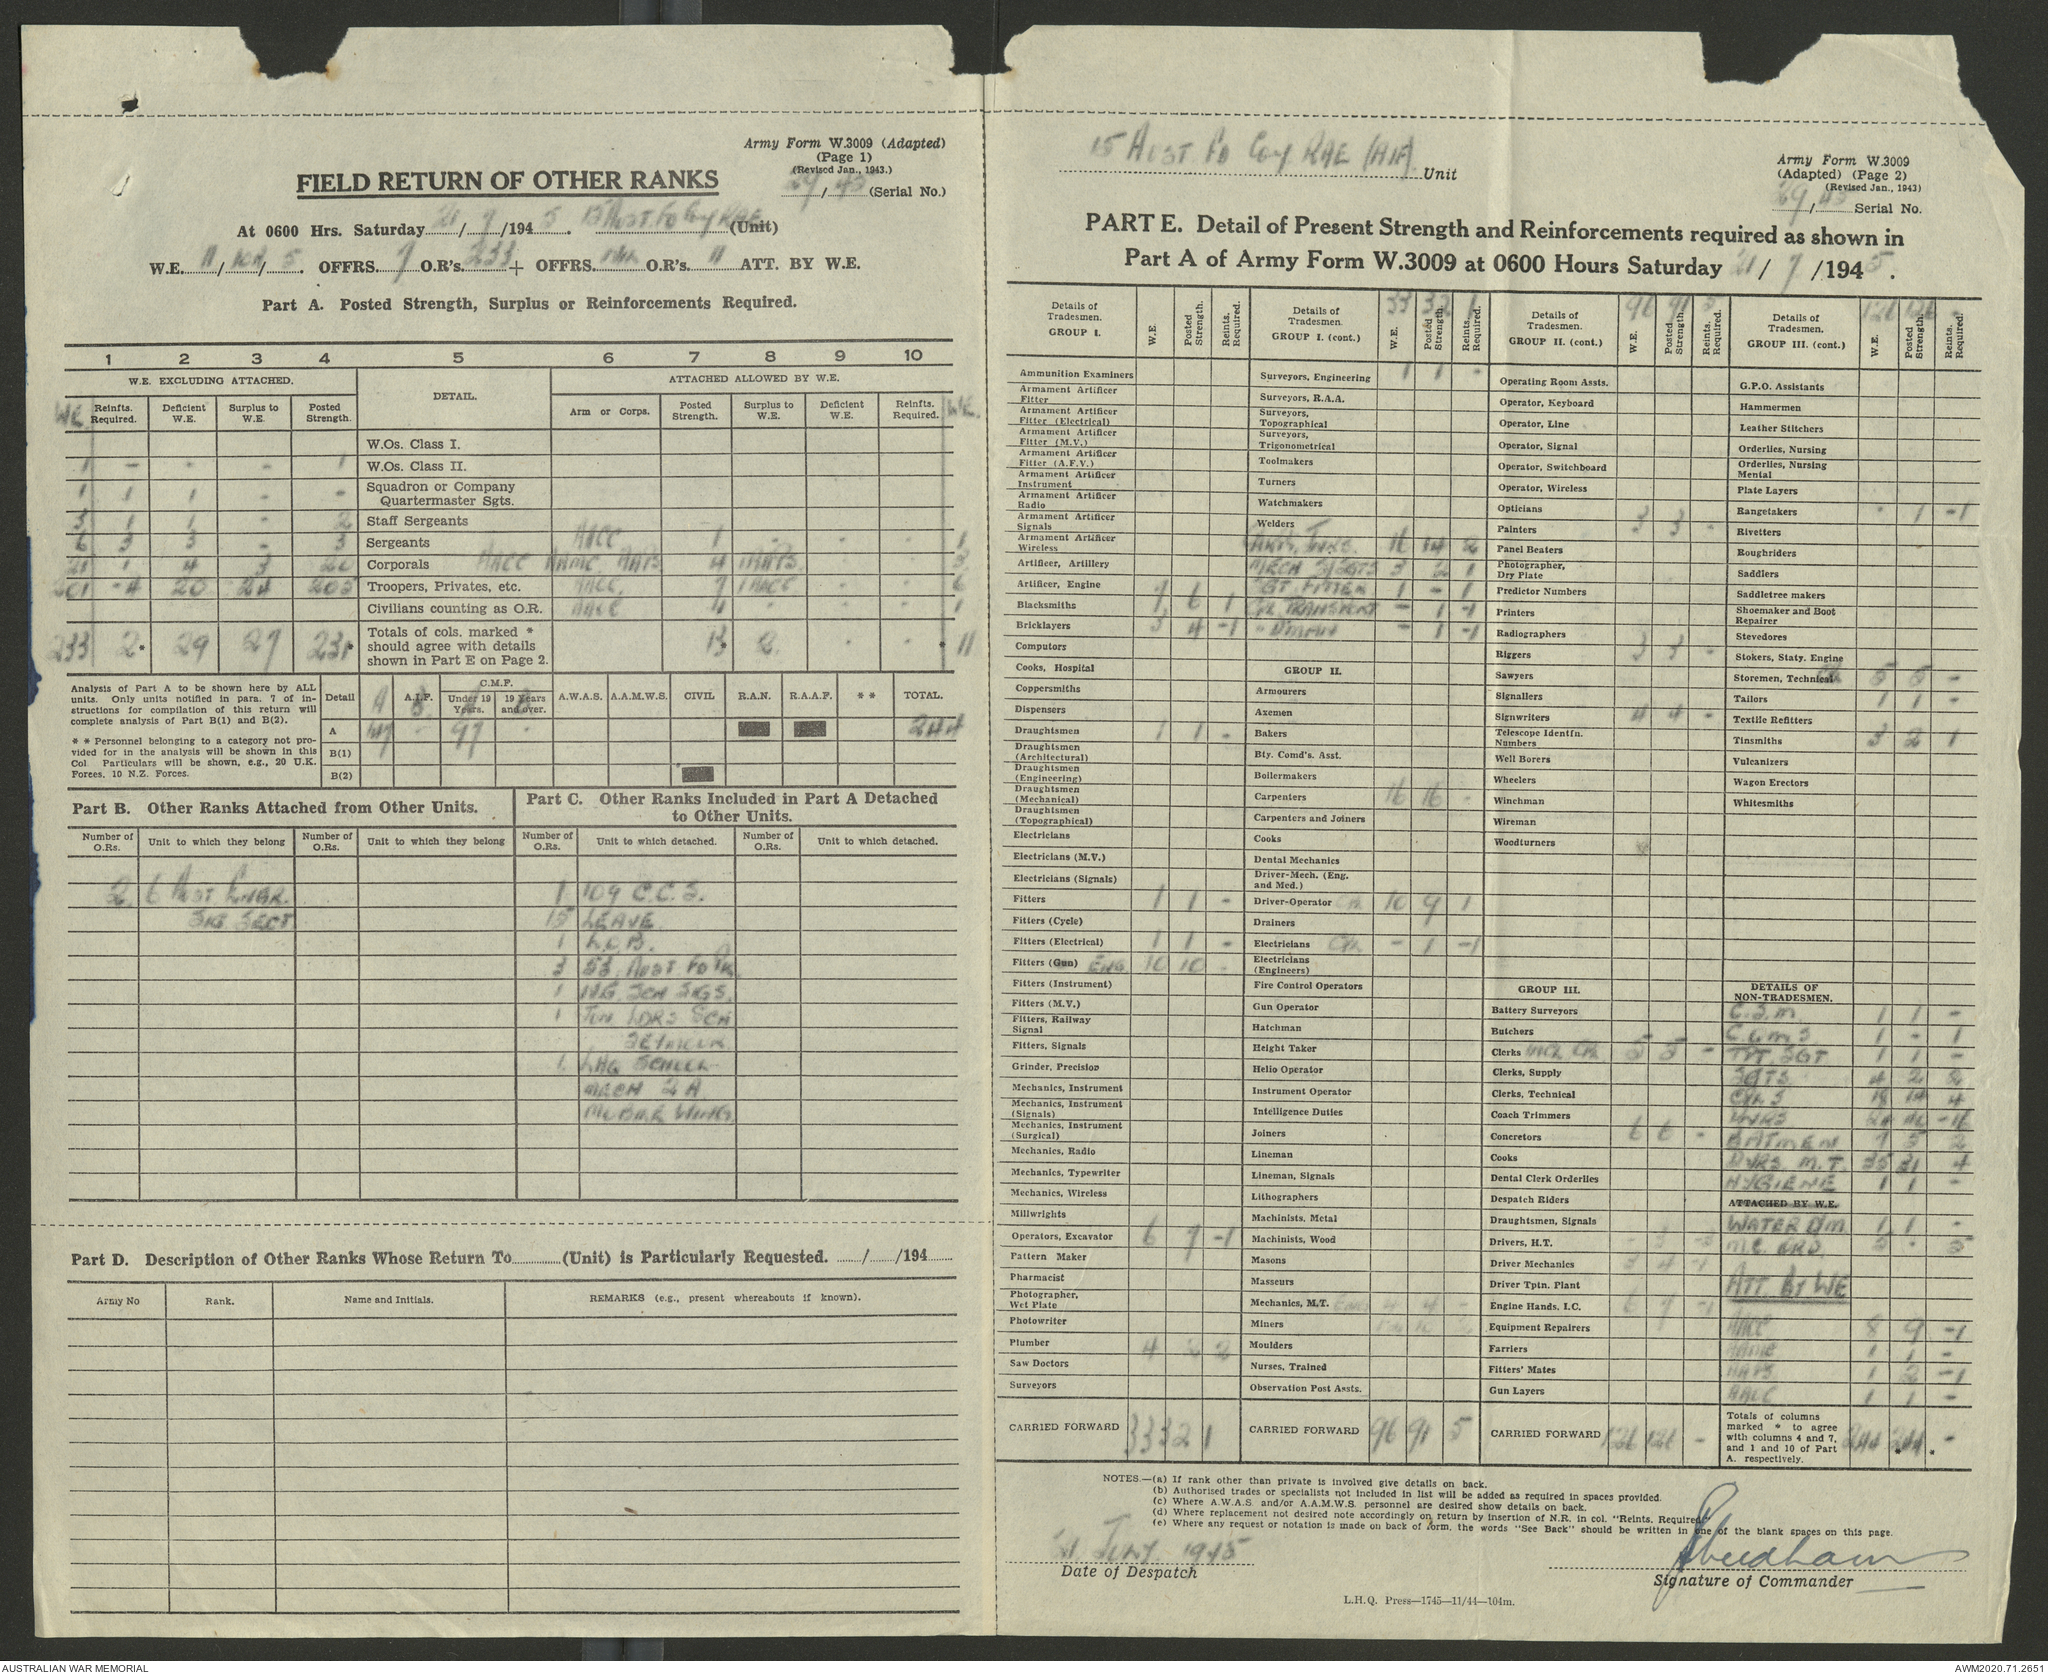 Army Form W.3009 (Adapted)
(Page 1)
(Revised Jan., 1943.)
29/45 (Serial No.)
FIELD RETURN OF OTHER RANKS
At 0600 Hrs. Saturday 21/7/1945. 15 Aust Fd Coy RAE (Unit)
W.E. 11/ /5. OFFRS. 7 O.R's. 233 + OFFRS. O.R's. 11 ATT. BY W.E.
Part A. Posted Strength, Surplus or Reinforcements Required.
1 2 3 4 5 6 7 8 9 10
W.E. EXCLUDING ATTACHED. DETAIL. ATTACHED ALLOWED BY W.E.
WE. Reinfts. Required. Deficient W.E. Surplus to W.E. Posted Strength. Arm or Corps. Posted Strength. Surplus to W.E. Deficient W.E. Reinfts. Required. WE.
W.Os. Class I.
1 - - - 1 W.Os. Class II.
1 1 1 - - Squadron or Company Quartermaster Sgts.
3 1 1 - 2 Staff Sergeants
6 3 3 - 3 Sergeants AACC 1 - - 1
21 1 4 3 20 Corporals AACC AAMC AAPS 4 1AAPS - 3
201 -4 20 24 205 Troopers, Privates, etc. AACC 7 1AACC - - 6
Civilians counting as O.R. AACC 1 - - - 1
233 2* 29 27 231* Totals of cols. marked * should agree with details shown in Part E on Page 2. 13 2 - - * 11
Analysis of Part A to be shown here by ALL units. Only units notified in para. 7 of instructions for compilation of this return will complete analysis of Part B(1) and B(2).
* * Personnel belonging to a category not provided for in the analysis will be shown in this Col. Particulars will be shown, e.g., 20 U.K. Forces, 10 N.Z. Forces.
Detail A.I.F. C.M.F. Under 19 Years. 19 Years and over. A.W.A.S. A.A.M.W.S. CIVIL R.A.N. R.A.A.F. * * TOTAL.
A - 97 - 244
B(1)
B(2)
Part B. Other Ranks Attached from Other Units.
Part C. Other Ranks Included in Part A Detached to Other Units.
Number of O.Rs. Unit to which they belong Number of O.Rs. Unit to which they belong Number of O.Rs. Unit to which detached. Number of O.Rs. Unit to which detached.
2 6 Aust 1 109 C.C.S.
Sig Sect 15 LEAVE
1 L.O.B.
3 53 Aust Fd Pk
1 SCH SIGS.
1 Jun LDRS SCH
SEYMOUR
1 LHQ SCHOOL
MECH
WING.
Part D. Description of Other Ranks Whose Return To (Unit) is Particularly Requested. / /194
Army No Rank. Name and Initials. REMARKS (e.g., present whereabouts if known).
15 Aust Fd Coy RAE (AIF) Unit
Army Form W.3009
(Adapted) (Page 2)
(Revised Jan., 1943)
29/45 Serial No.
PART E. Detail of Present Strength and Reinforcements required as shown in
Part A of Army Form W.3009 at 0600 Hours Saturday 21/7/1945.
Details of Tradesmen. GROUP I. W.E. Posted Strength. Reints. Required.
Ammunition Examiners
Armament Artificer Fitter
Armament Artificer Fitter (Electrical)
Armament Artificer Fitter (M.V.)
Armament Artificer Fitter (A.F.V.)
Armament Artificer Instrument
Armament Artificer Radio
Armament Artificer Signals
Armament Artificer Wireless
Artificer, Artillery
Artificer, Engine
Blacksmiths 7 6 1
Bricklayers 3 4 -1
Computors
Cooks, Hospital
Coppersmiths
Dispensers
Draughtsmen 1 1 -
Draughtsmen (Architectural)
Draughtsmen (Engineering)
Draughtsmen (Mechanical)
Draughtsmen (Topographical)
Electricians
Electricians (M.V.)
Electricians (Signals)
Fitters 1 1 -
Fitters (Cycle)
Fitters (Electrical) 1 1 -
Fitters (Gun) ENG 10 10 -
Fitters (Instrument)
Fitters (M.V.)
Fitters, Railway Signal
Fitters, Signals
Grinder, Precision
Mechanics, Instrument
Mechanics, Instrument (Signals)
Mechanics, Instrument (Surgical)
Mechanics, Radio
Mechanics, Typewriter
Mechanics, Wireless
Millwrights
Operators, Excavator 6 7 -1
Pattern Maker
Pharmacist
Photographer, Wet Plate
Photowriter
Plumber 4 2 2
Saw Doctors
Surveyors
CARRIED FORWARD 33 32 1
Details of Tradesmen. GROUP I. (cont.) 33 32 1 W.E. Posted Strength. Reints. Required.
Surveyors, Engineering 1 1 -
Surveyors, R.A.A.
Surveyors, Topographical
Surveyors, Trigonometrical
Toolmakers
Turners
Watchmakers
Welders
16 14 2
MECH S/SGTS 3 2 1
SGT. FITTER 1 - 1
CPL TRANSPORT - 1 -1
- 1 -1
GROUP II.
Armourers
Axemen
Bakers
Bty. Comd's. Asst.
Boilermakers
Carpenters 16 16 -
Carpenters and Joiners
Cooks
Dental Mechanics
Driver-Mech. (Eng. and Med.)
Driver-Operator CPL 10 9 1
Drainers
Electricians CPL - 1 -1
Electricians (Engineers)
Fire Control Operators
Gun Operator
Hatchman
Height Taker
Helio Operator
Instrument Operator
Intelligence Duties
Joiners
Lineman
Lineman, Signals
Lithographers
Machinists, Metal
Machinists, Wood
Masons
Masseurs
Mechanics, M.T. 4 4 -
Miners
Moulders
Nurses, Trained
Observation Post Assts.
CARRIED FORWARD 96 91 5
Details of Tradesmen. GROUP II. (cont.) 96 91 5 W.E. Posted Strength. Reints. Required.
Operating Room Assts.
Operator, Keyboard
Operator, Line
Operator, Signal
Operator, Switchboard
Operator, Wireless
Opticians
Painters 3 3 -
Panel Beaters
Photographer, Dry Plate
Predictor Numbers
Printers
Radiographers
Riggers 3 3 -
Sawyers
Signallers
Signwriters 4 4 -
Telescope Identfn. Numbers
Well Borers
Wheelers
Winchman
Wireman
Woodturners
GROUP III.
Battery Surveyors
Butchers
Clerks INCL CPL 5 5 -
Clerks, Supply
Clerks, Technical
Coach Trimmers
Concretors 6 6 -
Cooks
Dental Clerk Orderlies
Despatch Riders
Draughtsmen, Signals
Drivers, H.T. - 3 -3
Driver Mechanics 3 4 -1
Driver Tptn. Plant
Engine Hands, I.C. 6 7 -1
Equipment Repairers
Farriers
Fitters' Mates
Gun Layers
CARRIED FORWARD 126 126 -
Details of Tradesmen. GROUP III. (cont.) 126 126 - W.E. Posted Strength. Reints. Required.
G.P.O. Assistants
Hammermen
Leather Stitchers
Orderlies, Nursing
Orderlies, Nursing Mental
Plate Layers
Rangetakers - 1 -1
Rivetters
Roughriders
Saddlers
Saddletree makers
Shoemaker and Boot Repairer
Stevedores
Stokers, Staty. Engine
Storemen, Technical 5 5 -
Tailors 1 1 -
Textile Refitters
Tinsmiths 3 2 1
Vulcanizers
Wagon Erectors
Whitesmiths
DETAILS OF NON-TRADESMEN.
C.S.M. 1 1 -
C.Q.M.S 1 - 1
TPT. SGT 1 1 -
SGTS 4 2 2
CPLS 18 14 4
-16
BATMEN 7 5 2
DVRS. M.T. 35 31 4
HYGIENE 1 1 -
ATTACHED BY W.E.
WATER D/M 1 1 -
M.C. ORD. 5 - 5
ATT. BY WE
AACC 8 9 -1
AAMC 1 1 -
AAPS 1 2 -1
AACC 1 1 -
Totals of columns marked * to agree with columns 4 and 7, and 1 and 10 of Part A. respectively. 244 * 244 * -
NOTES.—(a) If rank other than private is involved give details on back.
(b) Authorised trades or specialists not included in list will be added as required in spaces provided.
(c) Where A.W.A.S. and/or A.A.M.W.S. personnel are desired show details on back.
(d) Where replacement not desired note accordingly on return by insertion of N.R. in col. "Reints. Required."
(e) Where any request or notation is made on back of form, the words "See Back" should be written in one of the blank spaces on this page.
21 JULY 1945
Date of Despatch
Signature of Commander
L.H.Q. Press—1745—11/44—104m.
AUSTRALIAN WAR MEMORIAL
AWM2020.71.2651